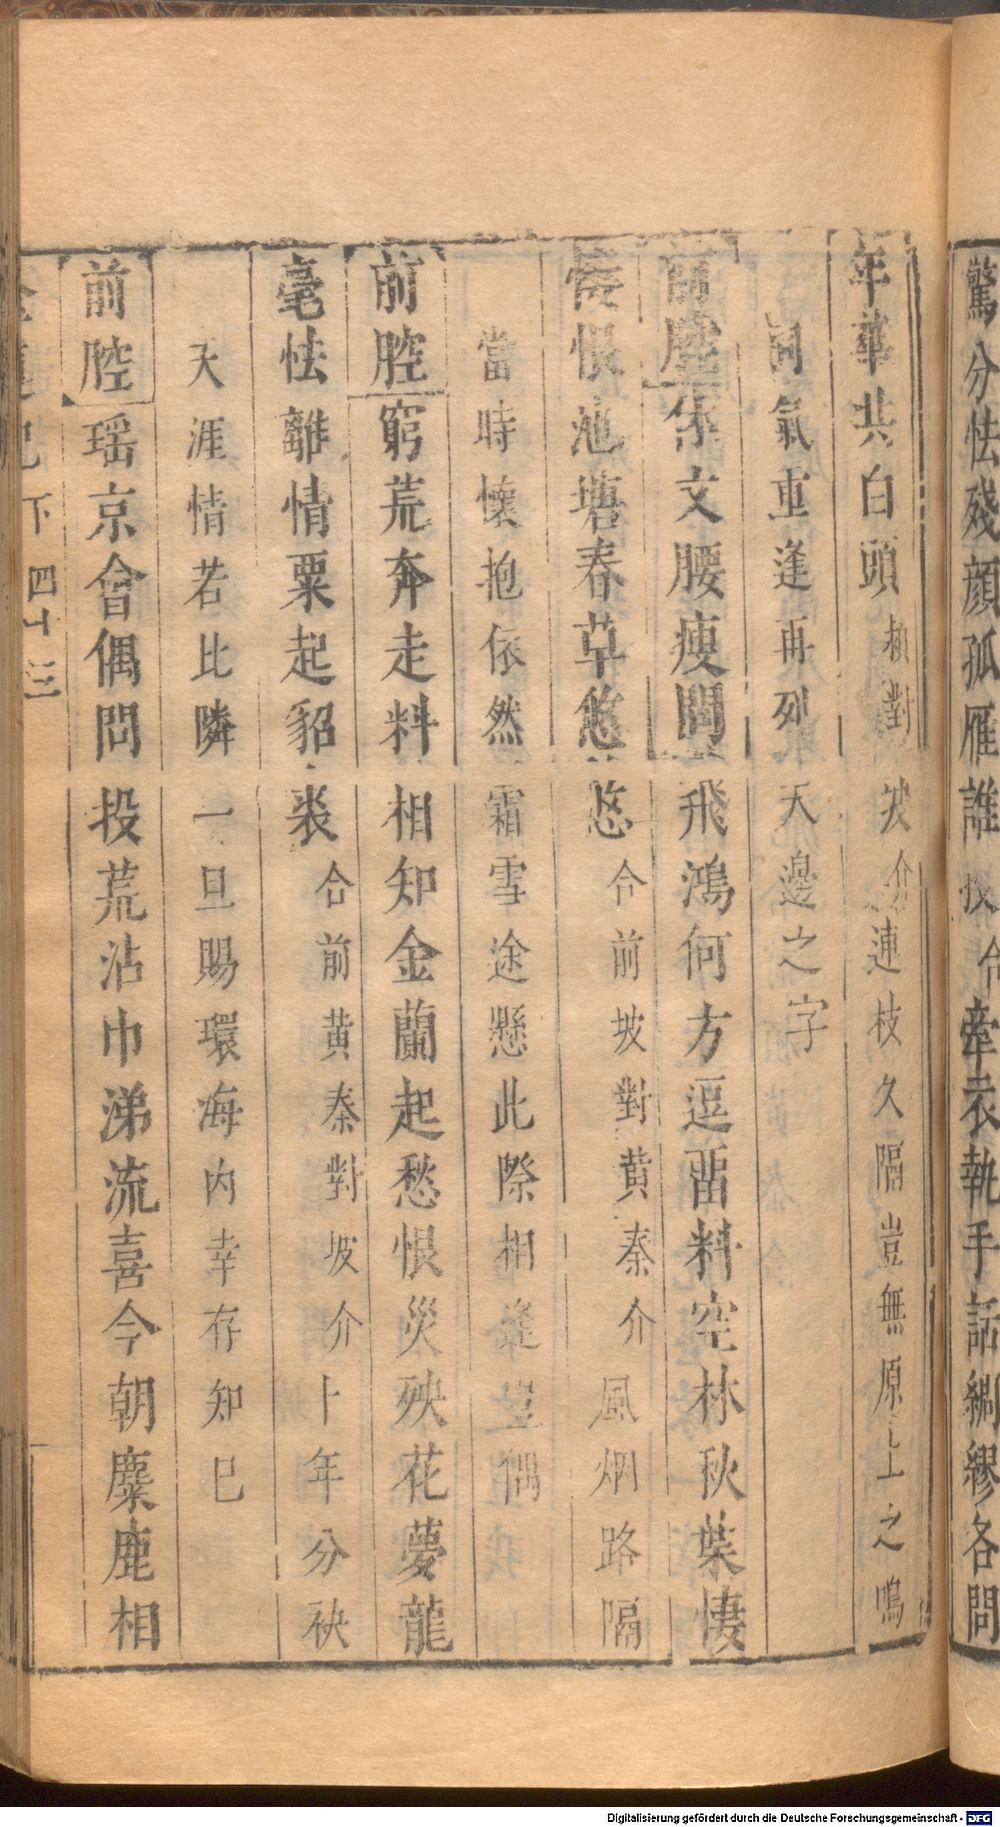 驚分怯殘顏孤雁誰投合牽衣執手話綢繆各問
年華共白頭 頰對坡介連枝久隔豈無原上之鳴
同氣重逢再列天邊之字
前腔 休文腰瘦閗飛鴻何方逗畱料空林秋葉悽
悽恨池塘春草悠悠 合前坡對黃秦介風烟路隔
當時懷抱依然霜雪途懸此際相逢豈偶
前腔 窮荒奔走料相知金蘭起愁恨災殃花夢龍
毫怯離情粟起貂裘 合前黄秦對坡介十年分袂
天涯情若比隣一旦賜環海内幸存知已
前腔 瑶京會偶問投荒沾巾涕流喜今朝麋鹿相
記 下 四十三
Digitalisierung gefördert durch die Deutsche Forschungsgemeinschaft - DFG